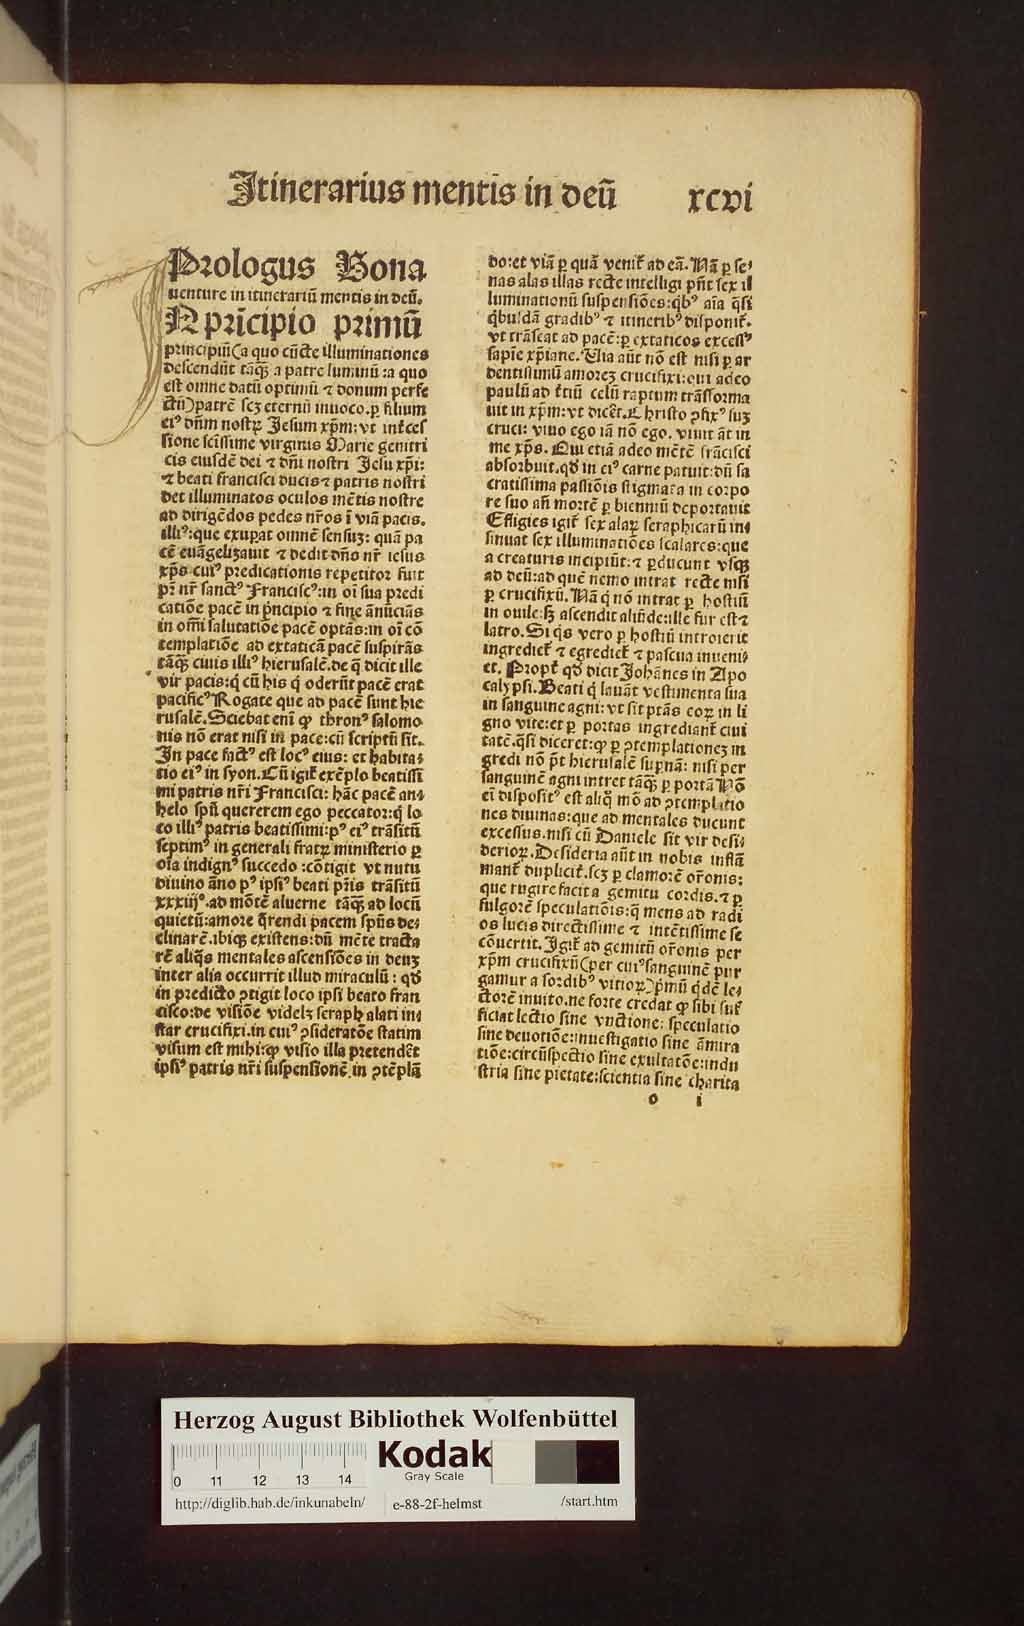 Itinerarius mentis in deū xcvi
Prologus Bona
uenture in itinerariū mentis in deū.
IN prīcipio primū
principiū(a quo cūcte illuminationes
descendūt tāꝗ̄ a patre luminū :a quo
est omne datū optimū ⁊ donum perfe
ctū)patrē scꝫ eternū inuoco.ꝑ filium
eiꝰ dn̄m nostꝝ Jesum xp̄m:vt int̄ces
sione scīssime virginis Marie genitri
cis eiusdē dei ⁊ dn̄i nostri Jesu xp̄i:
⁊ beati francisci ducis⁊ patris nostri
det illuminatos oculos mētis nostre
ad dirigēdos pedes nr̄os ī viā pacis.
illiꝰ:que exuꝑat omnē sensuꝫ: quā pa
cē euāgelizauit ⁊ dedit dn̄s nr̄ iesus
xp̄s cuiꝰ predicationis repetitor fuit
pr̄ nr̄ sanctꝰ Franciscꝰ:in oī sua predi
catiōe pacē in pn̄cipio ⁊ fine ānūciās
in om̄i salutatiōe pacē optās:in oī cō
templatiōe ad extaticā pacē suspirās
tāꝗ̄ ciuis illiꝰ hierusalē.de q̄ dicit ille
vir pacis:q̇ cū his q̇ oderūt pacē erat
pacificꝰ Rogate que ad pacē sunt hie
rusalē.Sciebat enī ꝙ thronꝰ salomo
nis nō erat nisi in pace:cū scriptū sit.
In pace factꝰ est locꝰ eius: et habita⸗
tio eiꝰ in syon.Cū igit̄ exēplo beatissi
mi patris nr̄i Francisci: hāc pacē an⸗
helo spū quererem ego peccator:q̇ lo
co illiꝰ patris beatissimi:pꝰ eiꝰ trāsitū
septimꝰ in generali fratꝝ ministerio ꝑ
oīa indignꝰ succedo :cōtigit vt nutu
diuino āno pꝰ ipsiꝰ beati pr̄is trāsitū
xxxiijº.ad mōtē aluerne tāꝗ̄ ad locū
quietū:amore q̄rendi pacem spūs de⸗
clinarē.ibiqꝫ existens:dū mēte tracta
rē aliq̄s mentales ascensiōes in deuꝫ
inter alia occurrit illud miraculū : qđ
in predicto ꝯtigit loco ipsi beato fran
cisco:de visiōe videlꝫ seraph alati in⸗
star crucifixi.in cuiꝰ ꝯsideratōe statim
visum est mihi:ꝙ visio illa pretendēt
ipsiꝰ patris nr̄i suspensionē in ꝯtēplā
do:et viā ꝑ quā venit̄ ad eā.Nā ꝑ se⸗
nas alas illas recte intelligi pn̄t sex il
luminationū suspensiōes:qͥbꝰ aīa q̄si
qͥbusdā gradibꝰ ⁊ itineribꝰ disponit̄.
vt trāseat ad pacē:ꝑ extaticos excessꝰ
sapīe xp̄iane.Via aūt nō est nisi ꝑ ar
dentissimū amoreꝫ crucifixi:qui adeo
paulū ad t̄tiū celū raptum trāsforma
uit in xp̄m:vt dicēt.Christo ꝯfixꝰ suꝫ
cruci: viuo ego iā nō ego. viuit āt in
me xp̄s. Qui etiā adeo mētē frācisci
absorbuit.qđ in eiꝰ carne patuit:dū sa
cratissima passiōis stigmata in corpo
re suo an̄ mortē ꝑ bienniū deportauit
Effigies igit̄ sex alaꝝ seraphicarū in⸗
sinuat sex illuminatiōes scalares:que
a creaturis incipiūt:⁊ ꝑducunt vsqꝫ
ad deū:ad quē nemo intrat recte nisi
ꝑ crucifixū.Nā q̇ nō intrat ꝑ hostiū
in ouile:sꝫ ascendit aliūde:ille fur est⁊
latro.Si q̇s vero ꝑ hostiū introierit
ingrediet̄ ⁊ egrediet̄ ⁊ pascua inueni⸗
et. Propt̄ qđ dicit Johānes in Apo
calypsi.Beati q̇ lauāt vestimenta sua
in sanguine agni:vt sit ptās eoꝝ in li
gno vite:et ꝑ portas ingrediant̄ ciui
tatē.q̄si diceret:ꝙ ꝑ ꝯtemplationeꝫ in
gredi nō pt̄ hierusalē suꝑnā: nisi per
sanguinē agni intret tāꝗ̄ ꝑ portā Nō
eī dispositꝰ est aliq̇ mō ad ꝯtemplatio
nes diuinas:que ad mentales ducunt
excessus.nisi cū Daniele sit vir desi⸗
derioꝝ.Desideria aūt in nobis inflā
mant̄ duplicit̄.scꝫ ꝑ clamorē or̄onis:
que rugire facit a gemitu cordis.⁊ ꝑ
fulgorē speculatiōis:q̄ mens ad radi
os lucis directissime ⁊ intētissime se
cōuertit.Igit̄ ad gemitū or̄onis per
xp̄m crucifixū(per cuiꝰsanguinē pur
gamur a sordibꝰ vitioꝝ)pͥmū q̇dē le⸗
ctorē inuito.ne forte credat ꝙ sibi suf
ficiat lectio sine vnctione: speculatio
sine deuotiōe:inuestigatio sine āmira
tiōe:circūspectio sine exultatōe:indu
stria sine pietate:scientia sine charita
o i
Herzog August Bibliothek Wolfenbüttel
0 11 12 13 14
Kodak
Gray Scale
http://diglib.hab.de/inkunabeln/ e-88-2f-helmst /start.htm